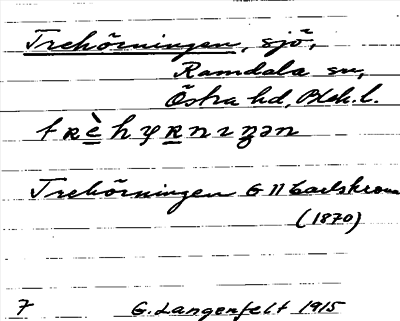 Trehörningen, sjö,
Ramdala sn,
Östra hd, Blek. l.
Trehörningen G 11 Carlskrona
(1870)
7 G. Langenfelt 1915